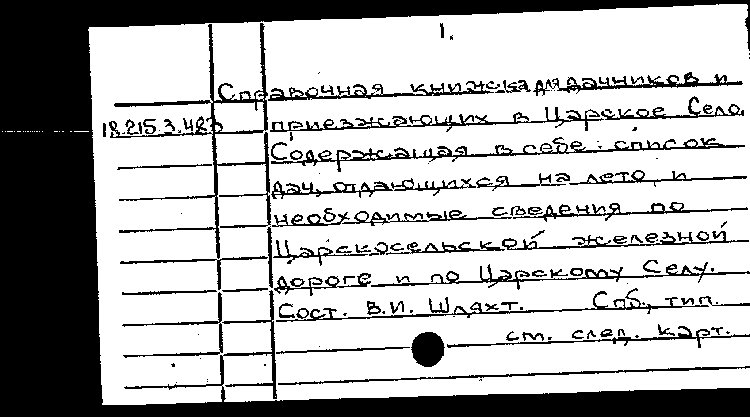 1.
Справочная книжка для дачников и
18.215.3.483 приезжающих в Царское Село,
Содержащая в себе: список
дач, отдающихся на лето, и
необходимые сведения по
Царскосельской железной
дороге и по Царскому Селу.
Сост. В.И. Шляхт. Спб., тип.
см. след. карт.